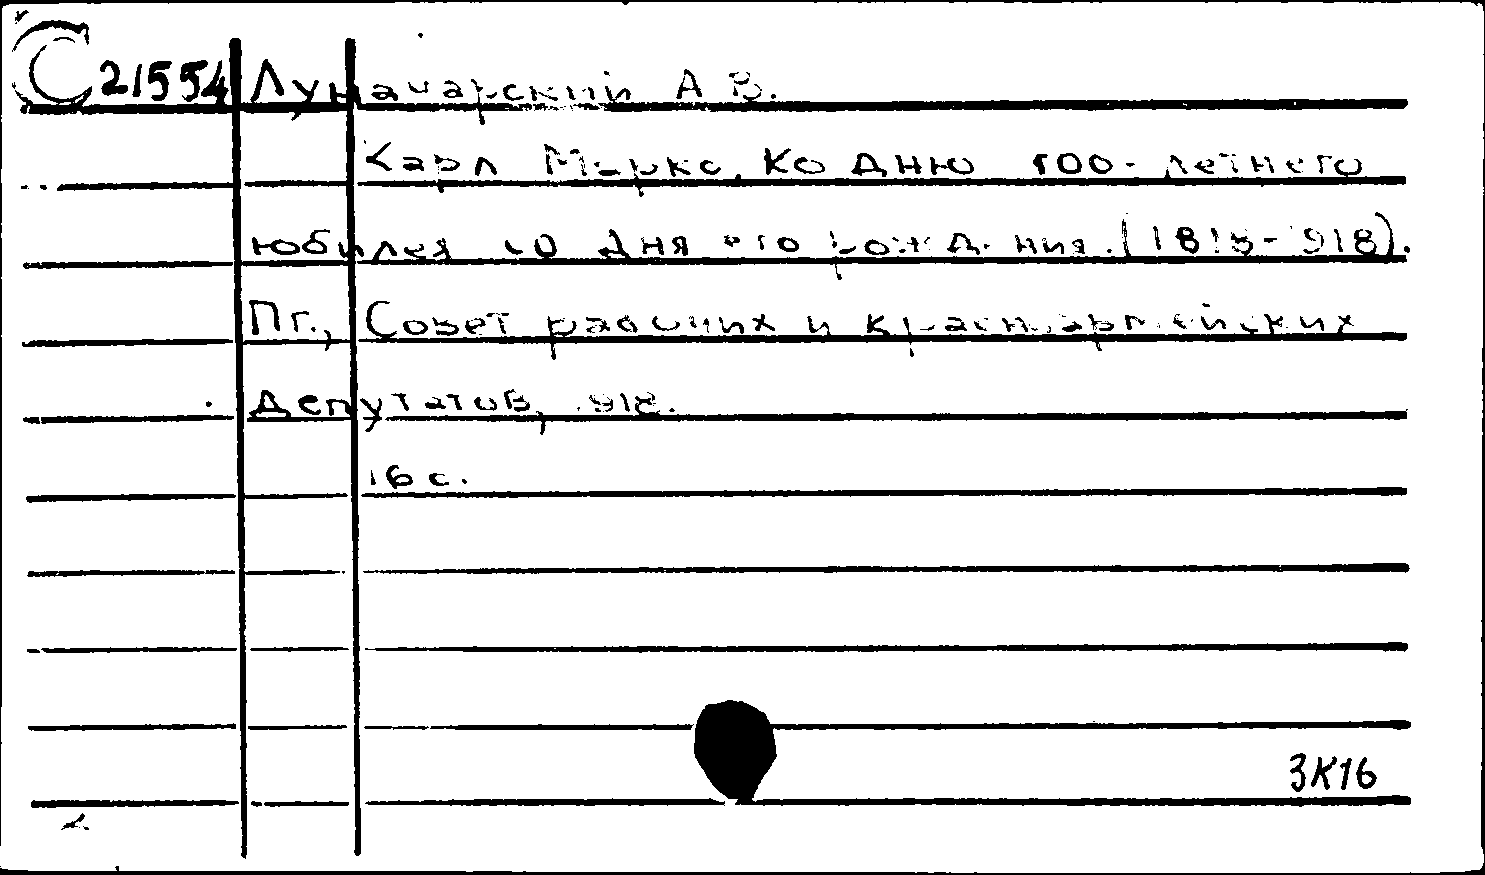 С 21554 Луначарский А В.
Карл Маркс. Ко дню 100-летнего
юбилея со дня его рождения. (1818-1918).
Пг., Совет рабочих и красноармейских
депутатов, 1918.
16 с.
3К16